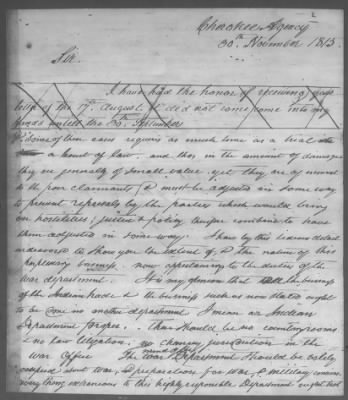 2
Cherokee Agency
30th November 1815
Sir.
I have had the honor of receiving your
letter of the 17th August, it did not come into my
hands untill the 30th September
Some of them cases requires as much time as a trial
a court of law, and tho in the amount of damages
they are generally of small value, yet they are of moment
to the poor claimant, & must be adjusted in some way
to prevent reprisals by the parties which would bring
on hostilities; justice & policy therefore combine to have
them adjusted in some way. I have by this tedious detail
endeavored to shew you the extent of, & the nature of this
perplexing business, now appertaining to the duties of the
War department. It is my opinion that all the business
of the Indian trade & the business such as now stated ought
to be in another department I mean an Indian
Department proper. There should be no counting rooms
no law litigation, no chancery jurisdiction in the
War Office The mind of the War Department should be solely
occupied about war, & preparations for war, & military concerns
every thing extraneous to this highly responsible Department ought not